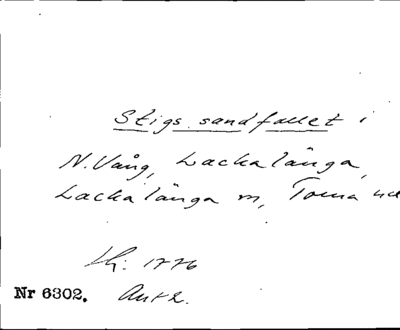 Stigs sandfallet i
N. Vång, Lackalänga,
Lackalänga sn, Torna hd
Nr 6302.